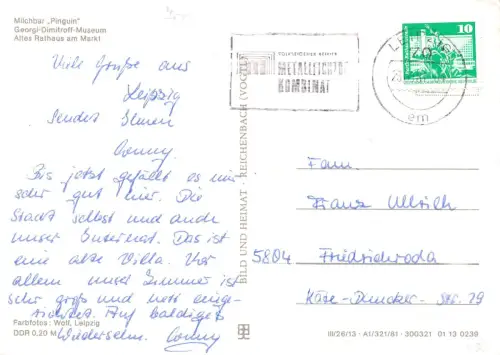 Milchbar „Pinguin“
Georgi-Dimitroff-Museum
Altes Rathaus am Markt
Viele Grüße aus
Leipzig
sendet Ihnen
Conny.
Bis jetzt gefällt es mir
sehr gut hier. Die
Stadt selbst und auch
unser Internat. Das ist
eine alte Villa. Vor
allem unser Zimmer ist
sehr groß und nett einge-
richtet. Auf baldiges
Wiedersehn. Conny
Farbfotos: Wolf, Leipzig
DDR 0,20 M
BILD UND HEIMAT · REICHENBACH (VOGTL)
VOLKSEIGENER BETRIEB
METALLLEICHTBAU
KOMBINAT
LEIPZIG
em
10
Fam.
Franz Ullrich
5804 Friedrichroda
Käte-Duncker-Str. 29
III/26/13 · A1/321/81 · 300321 01 13 0239